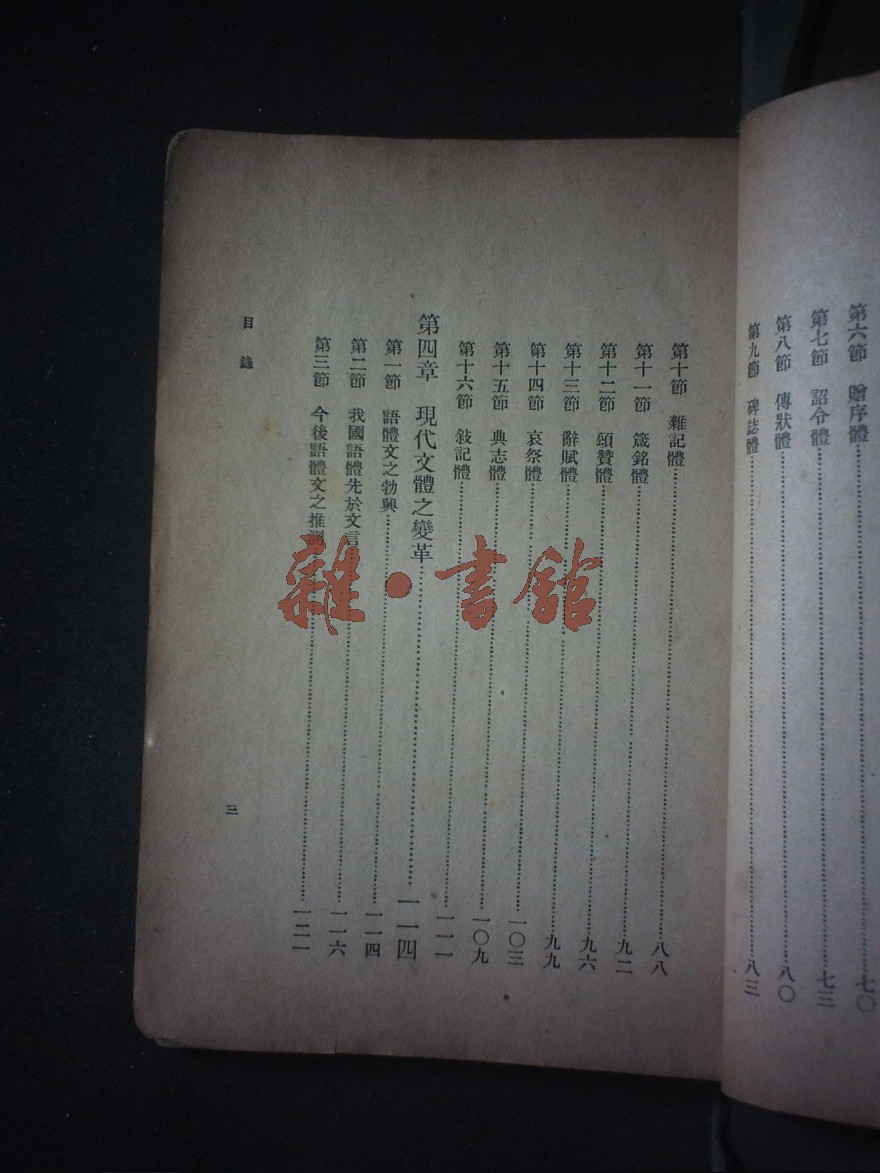 第六節　贈序體……七〇
第七節　詔令體……七三
第八節　傳狀體……八〇
第九節　碑誌體……八三
第十節　雜記體……八八
第十一節　箴銘體……九二
第十二節　頌贊體……九六
第十三節　辭賦體……九九
第十四節　哀祭體……一〇三
第十五節　典志體……一〇九
第十六節　敍記體……一一一
第四章　現代文體之變革……一一四
第一節　語體文之勃興……一一四
第二節　我國語體先於文言……一一六
第三節　今後語體文之推測……一二一
目錄
三
雜·書館